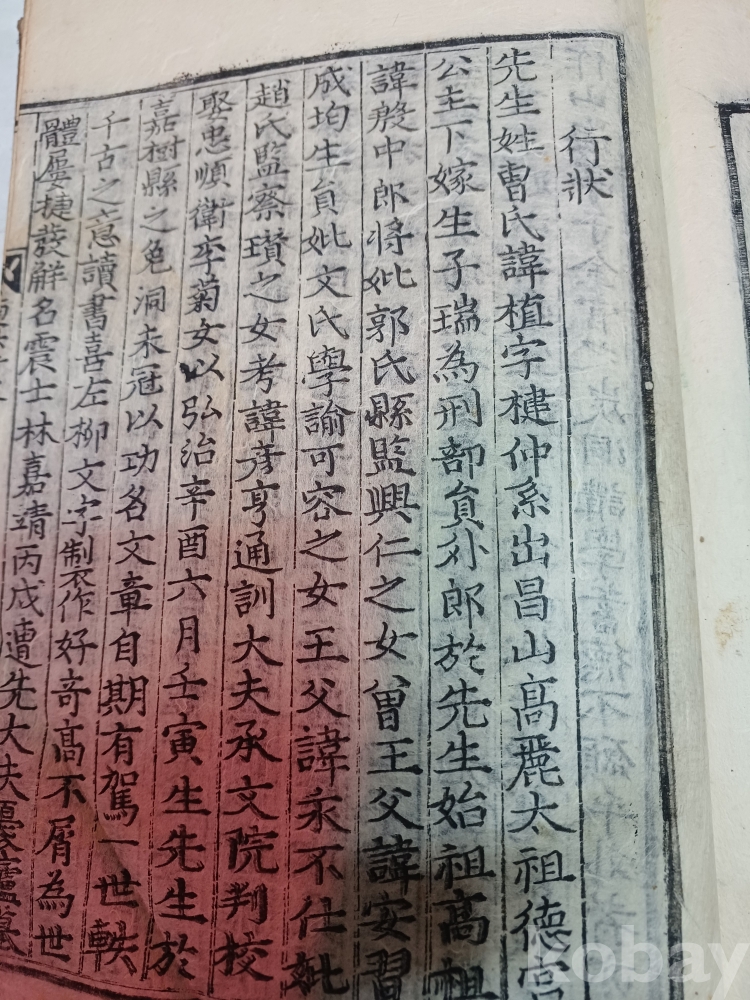 行狀
先生姓曺氏諱植字楗仲系出昌山高麗太祖德宮
公主下嫁生子瑞為刑部貟外郎於先生始祖高祖
諱殷中郎將妣郭氏縣監興仁之女曾王父諱安習
成均生貟妣文氏學諭可容之女王父諱永不仕妣
趙氏監察瓚之女考諱彦亨通訓大夫承文院判校
娶忠順衛李菊女以弘治辛酉六月壬寅生先生於
嘉樹縣之兔洞未冠以功名文章自期有駕一世軼
千古之意讀書喜左柳文字制作好奇高不屑為世
體屢捷發解名震士林嘉靖丙戌遭先大夫憂廬墓
kobay